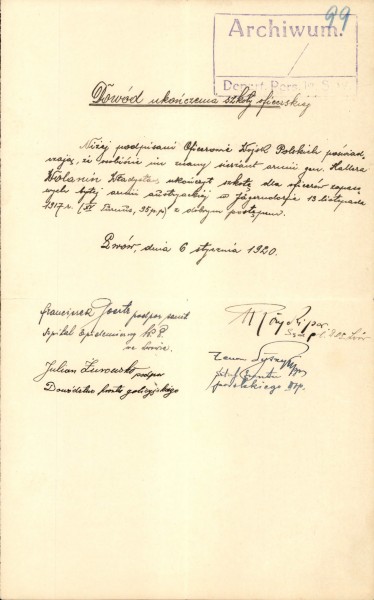 99
Archiwum.
/
Depart. Pers.
Dowód ukończenia szkoły oficerskiej
Niżej podpisani Oficerowie Wojsk Polskich poświad-
czają, że osobiście im znany sierżant armii gen. Hallera
Wolanin Władysław ukończył szkołę dla oficerów zapaso-
wych byłej armii austryackiej w Jägerndorfie 13 listopada
1917 r. (35 p.p.) z dobrym postępem.
Lwów, dnia 6 stycznia 1920.
Franciszek podpor. sanit
Szpital Epidemiczny W.P.
we Lwowie.
Julian podpor
Dowództwo frontu galicyjskiego
Zenon
frontu
podolskiego